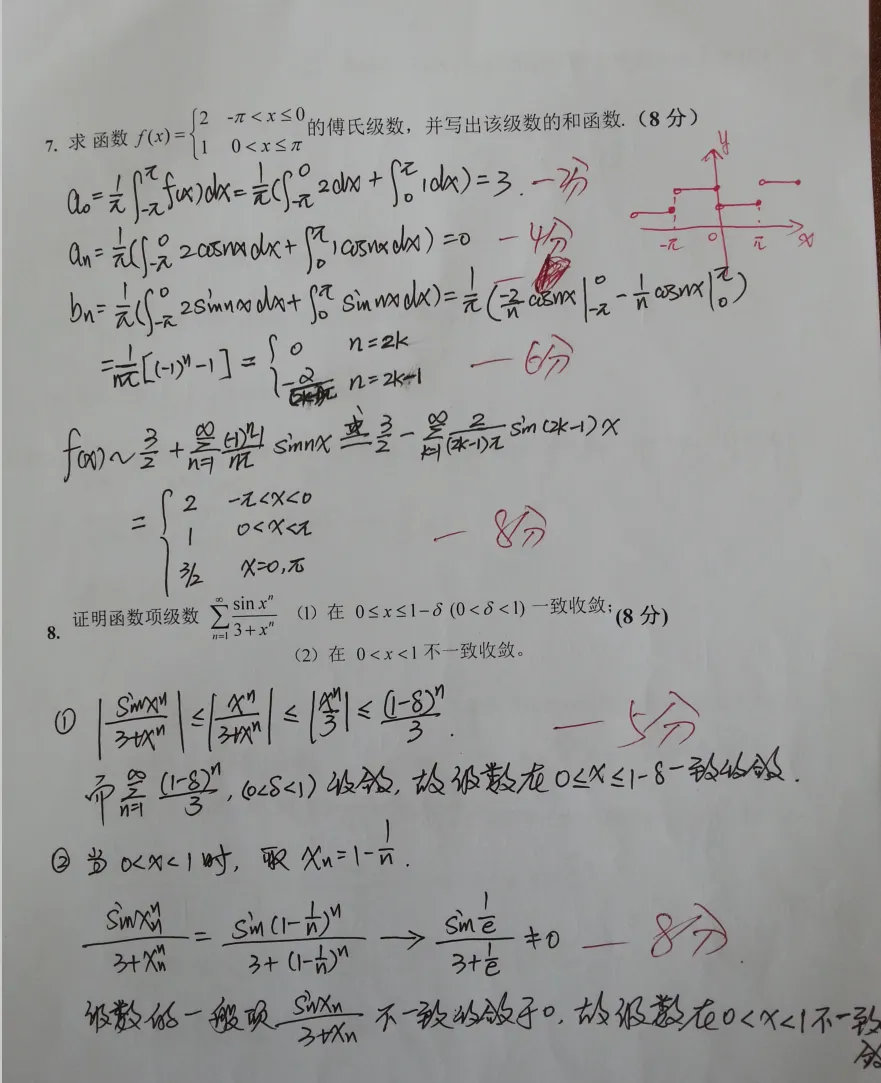 7. 求 函数 f(x)={2 -π<x≤0 1 0<x≤π 的傅氏级数，并写出该级数的和函数.（8 分）
a₀=1/π∫_{-π}^{π}f(x)dx=1/π(∫_{-π}^{0}2dx+∫_{0}^{π}1dx)=3. —2分
y
-π 0 π x
aₙ=1/π(∫_{-π}^{0}2cosnxdx+∫_{0}^{π}1cosnxdx)=0 —4分
bₙ=1/π(∫_{-π}^{0}2sinnxdx+∫_{0}^{π}sinnxdx)=1/π(-2/n cosnx|_{-π}^{0}-1/n cosnx|_{0}^{π})
=1/nπ[(-1)ⁿ-1]={0 n=2k -2/(2k-1)π n=2k-1 —6分
f(x)~3/2+∑_{n=1}^{∞}((-1)ⁿ-1)/nπ sinnx 或= 3/2-∑_{k=1}^{∞}2/(2k-1)π sin(2k-1)x
={2 -π<x<0
1 0<x<π —8分
3/2 x=0,π
8. 证明函数项级数 ∑_{n=1}^{∞} sin xⁿ/(3+xⁿ) （1）在 0≤x≤1-δ (0<δ<1) 一致收敛；(8 分)
（2）在 0<x<1 不一致收敛。
① |sinxⁿ/(3+xⁿ)|≤|xⁿ/(3+xⁿ)|≤|xⁿ/3|≤(1-δ)ⁿ/3. —5分
而∑_{n=1}^{∞}(1-δ)ⁿ/3,(0<δ<1)收敛,故级数在0≤x≤1-δ一致收敛.
② 当0<x<1时,取 xₙ=1-1/n.
sinxₙⁿ/(3+xₙⁿ)=sin(1-1/n)ⁿ/(3+(1-1/n)ⁿ)→sin(1/e)/(3+1/e)≠0 —8分
级数的一般项 sinxₙ/(3+xₙ) 不一致收敛于0,故级数在0<x<1不一致
敛